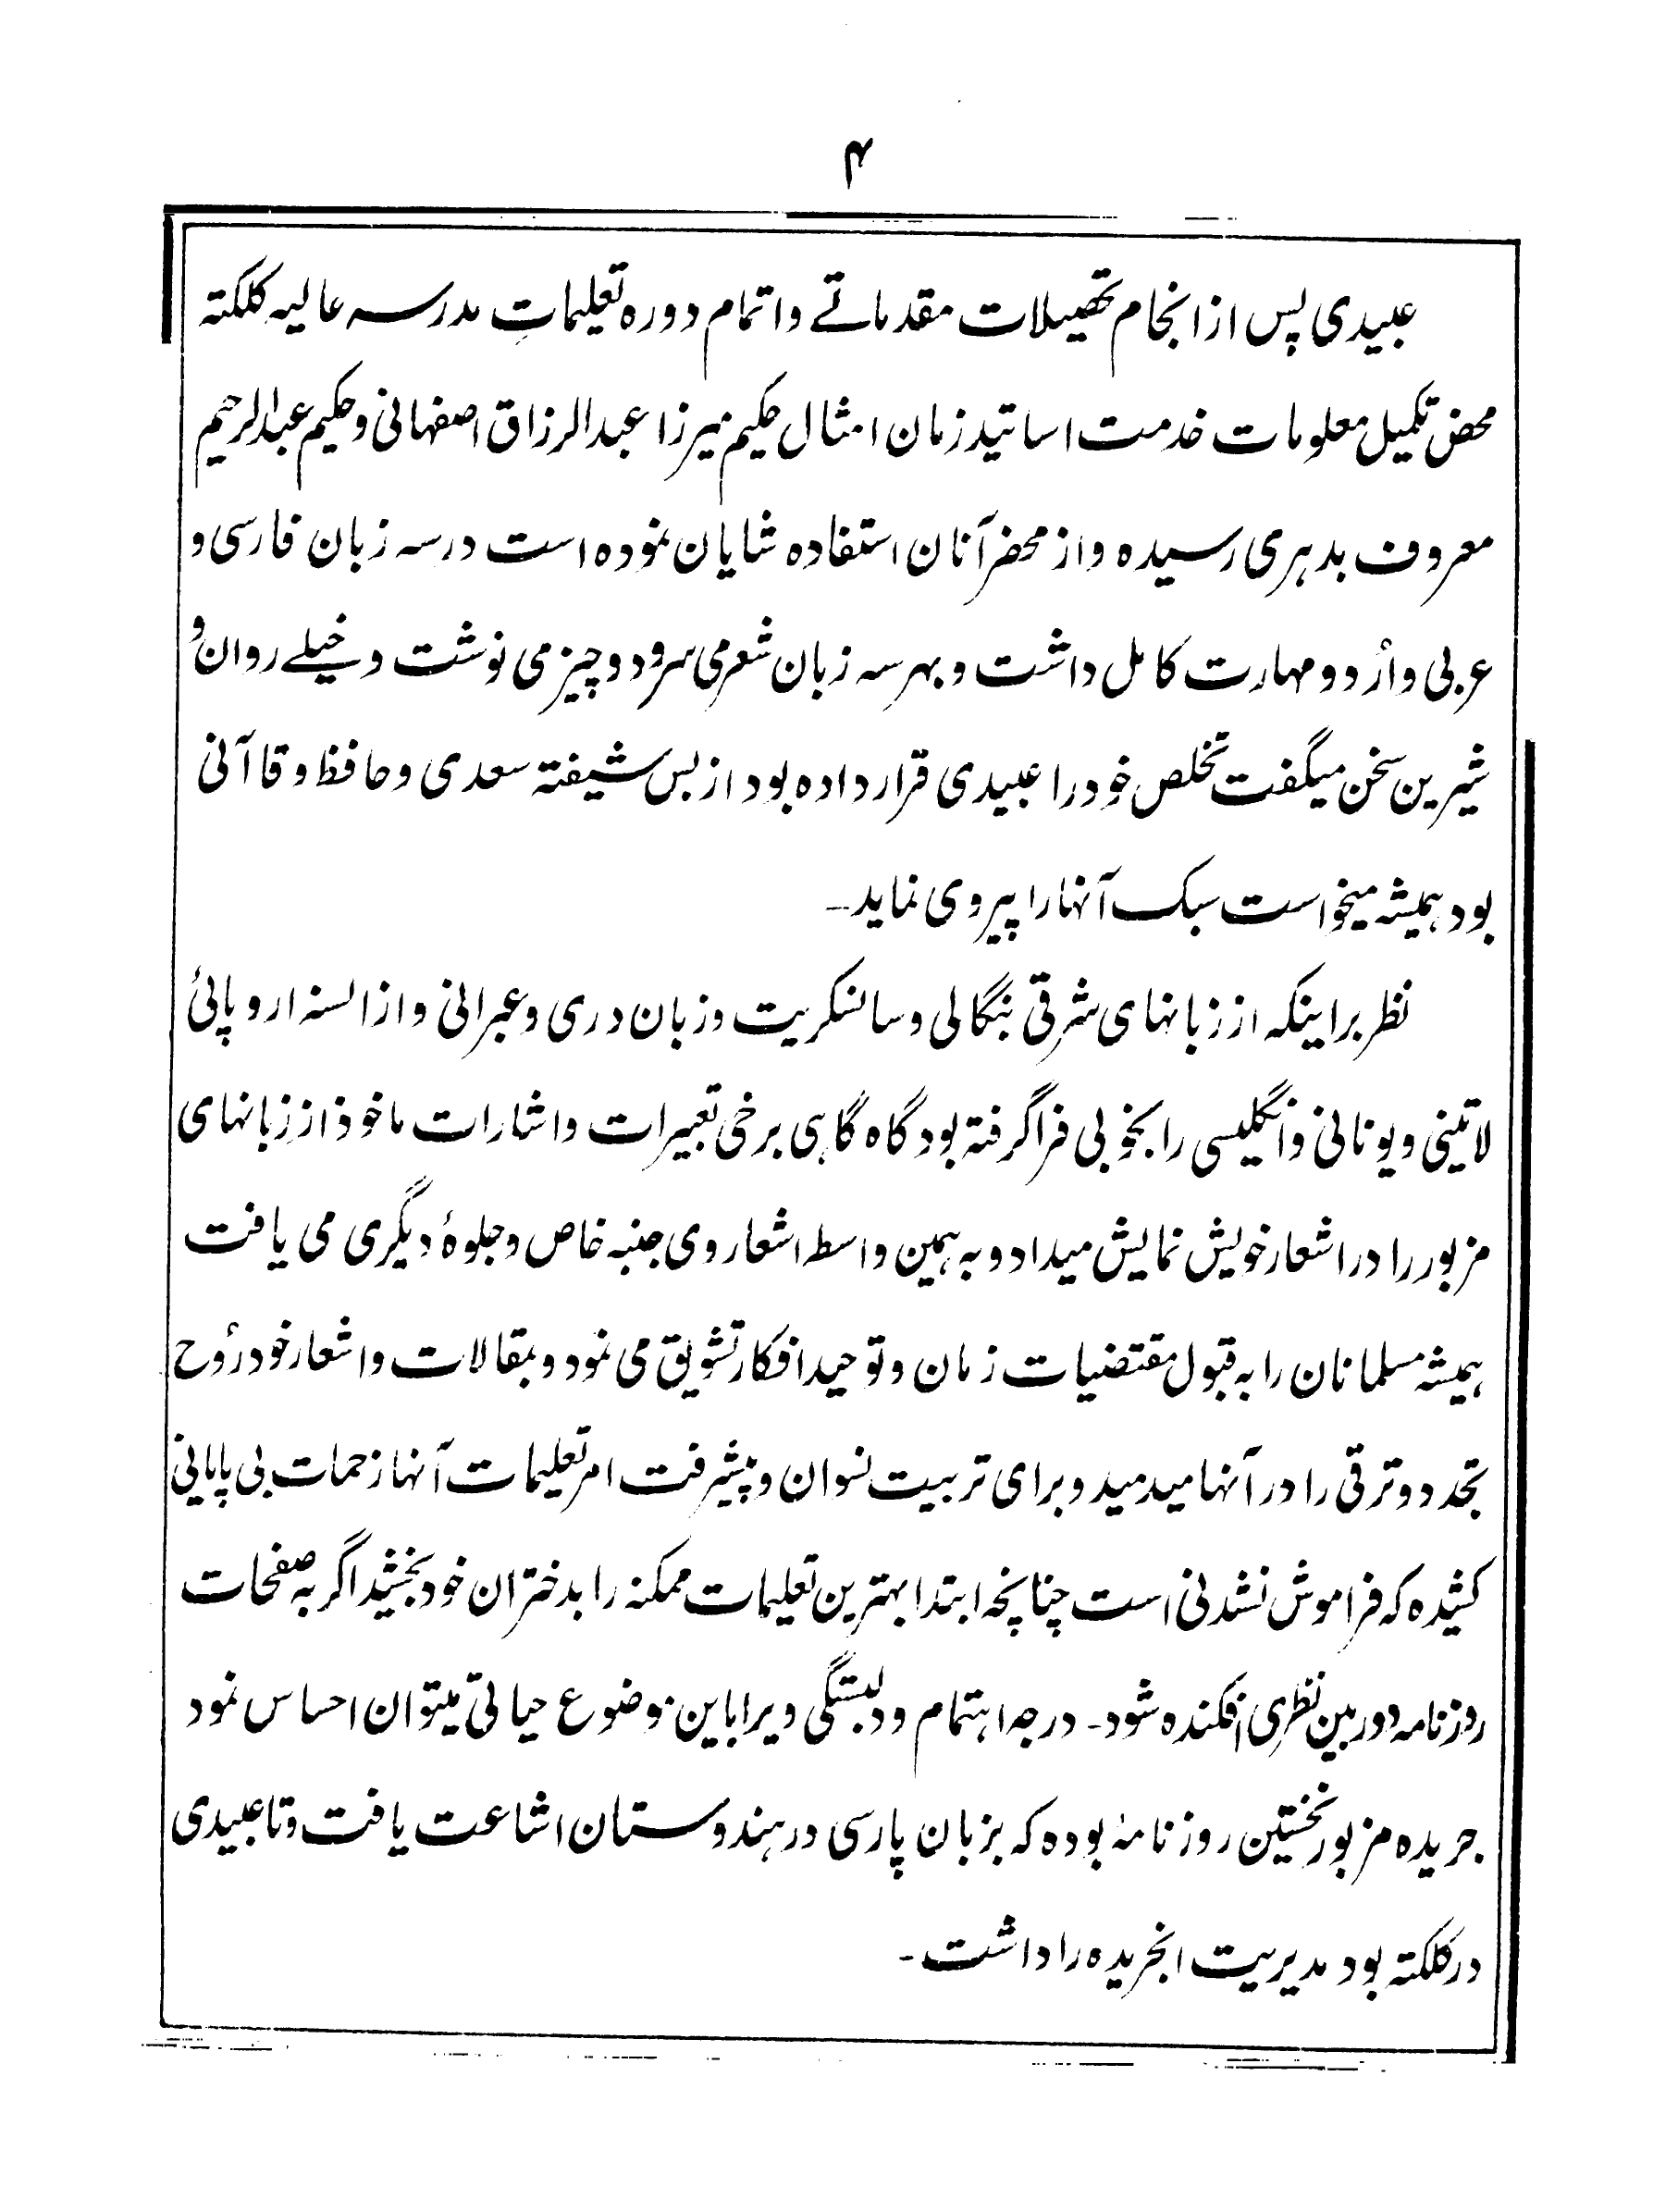 ۴
عبیدی پس از انجام تحصیلات مقدماتے و اتمام دوره تعلیماتِ مدرسہ عالیہ کلکتہ
محض تکمیل معلومات خدمت اساتید زمان امثال حکیم میرزا عبدالرزاق اصفہانی و حکیم عبدالرحیم
معروف بدہری رسیده و از محضر آنان استفاده شایان نموده است در سہ زبان فارسی و
عربی و اُردو مہارت کامل داشت و بہر سہ زبان شعر می سرود و چیز می نوشت و خیلے روان و
شیرین سخن میگفت تخلص خود را عبیدی قرار داده بود از بس شیفتہ سعدی و حافظ و قاآنی
بود ہمیشہ میخواست سبک آنہا را پیروی نماید۔
نظر براینکہ از زبانہای شرقی بنگالی و سانسکریت و زبان دری و عبرانی و از السنہ اروپائی
لاتینی و یونانی و انگلیسی را بخوبی فراگرفتہ بود گاه گاہی برخی تعبیرات و اشارات ماخوذ از زبانہای
مزبور را در اشعار خویش نمایش میداد و بہ ہمین واسطہ اشعار وی جنبہ خاص و جلوۀ دیگری می یافت
ہمیشہ مسلمانان را بہ قبول مقتضیات زمان و توحید افکار تشویق می نمود و بمقالات و اشعار خود رُوح
تجدد و ترقی را در آنہا میدمید و برای تربیت نسوان و پیشرفت امر تعلیمات آنہا زحمات بی پایانی
کشیده کہ فراموش نشدنی است چنانچہ ابتدا بہترین تعلیمات ممکنہ را بدختران خود بخشید اگر بہ صفحات
روزنامہ دوربین نظری افکنده شود۔ درجہ اہتمام و دلبستگی ویرا باین موضوع حیاتی میتوان احساس نمود
جریده مزبور نخستین روزنامۂ بوده کہ بزبان پارسی در ہندوستان اشاعت یافت و تا عبیدی
در کلکتہ بود مدیریت انجریده را داشت۔